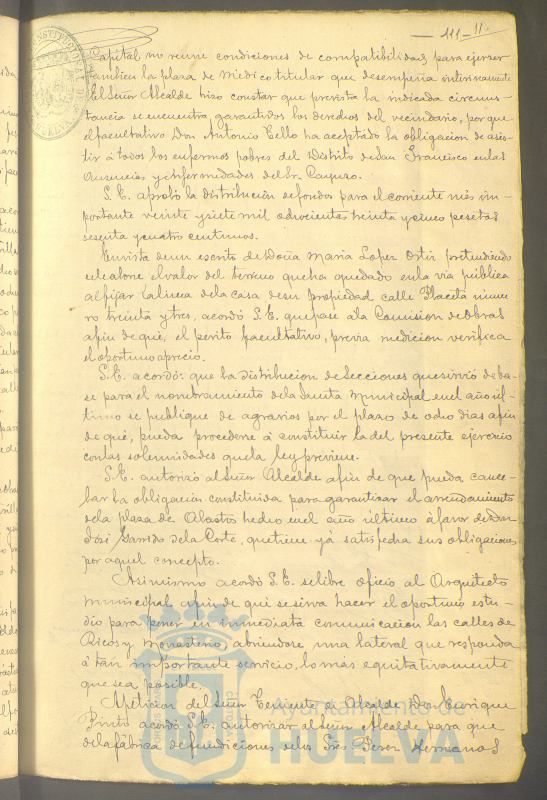 — 111 — 11.
Capital no reune condiciones de compatibilidad para ejerser
tambien la plaza de Medico titular que desempeña interinamente
El Señor Alcalde hizo constar que prevista la indicada circuns-
tancia se encuentra garantidos los derechos del vecindario, por que
el facultativo Don Antonio Tello ha aceptado la obligacion de asis-
tir á todos los enfermos pobres del Distrito de San Francisco en las
Ausencias y enfermedades del Sr.
S. E. aprobó la distribución de fondos para el corriente mes im-
portante veinte y siete mil ochocientas treinta y cinco pesetas
sesenta y cuatro centimos.
En vista de un escrito de Doña Maria Lopez Ortiz pretendiendo
se le abone el valor del terreno que ha quedado en la via publica
al fijar la linea de la casa de su propiedad calle Placeta nume-
ro treinta y tres, acordó S. E. que pase á la Comision de Obras
afin de que, el périto facultativo, previa medicion verifica
el oportuno aprecio.
S. E. acordó: que la distribucion de Secciones que sirvió de ba-
se para el nombramiento de la Junta Municipal en el año úl-
timo se publique de agravios por el plazo de ocho dias afin
de que, pueda procederse á constituir la del presente ejercicio
con las solemnidades que la ley previene.
S. E. autorizó al Señor Alcalde afin de que pueda cance-
lar la obligacion constituida para garantizar el arrendamiento
de la plaza de Abastos hecho en el año último á favor de Don
José Garrido de la Corte, que tiene ya satisfecha sus obligaciones
por aquel concepto.
Asimismo acordó S. E. se libre oficio al Arquitecto
municipal afin de que se sirva hacer el oportuno estu-
dio para poner en inmediata comunicacion las calles de
Ricos y Monasterio, abriendose una lateral que responda
á tan importante servicio, lo mas equitativamente
que sea posible.
A peticion del Señor Teniente de Alcalde Don Enrique
Pinto acordó S. E. autorizar al Señor Alcalde para que
de la fábrica de fundiciones de los Sres. Hermanos
Ayuntamiento de
HUELVA